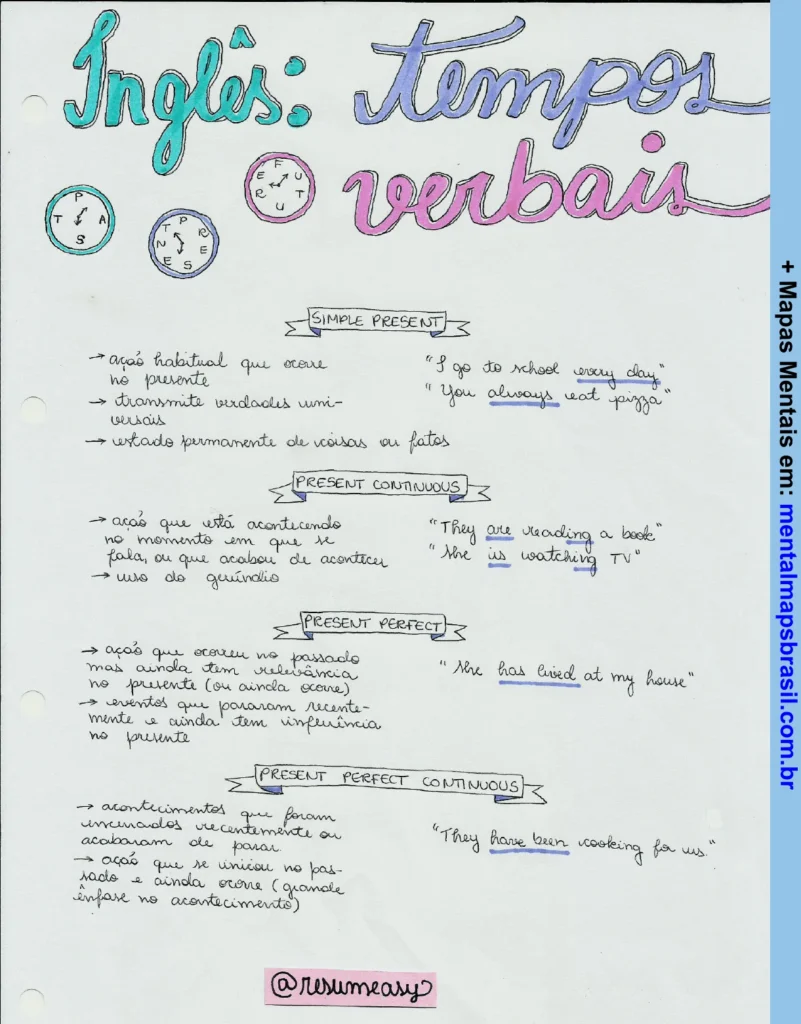 Inglês: tempos
verbais
PAST
PRESENT
FUTURE
SIMPLE PRESENT
→ ação habitual que ocorre
no presente
→ transmite verdades uni-
versais
→ estado permanente de coisas ou fatos
"I go to school every day"
"You always eat pizza"
PRESENT CONTINUOUS
→ ação que está acontecendo
no momento em que se
fala, ou que acabou de acontecer
→ uso do gerúndio
"They are reading a book"
"She is watching TV"
PRESENT PERFECT
→ ação que ocorreu no passado
mas ainda tem relevância
no presente (ou ainda ocorre)
→ eventos que pararam recente-
mente e ainda tem inferência
no presente
"She has lived at my house"
PRESENT PERFECT CONTINUOUS
→ acontecimentos que foram
encerrados recentemente ou
acabaram de parar.
→ ação que se iniciou no pas-
sado e ainda ocorre (grande
ênfase no acontecimento)
"They have been cooking for us."
@resumeasy
+ Mapas Mentais em: mentalmapsbrasil.com.br